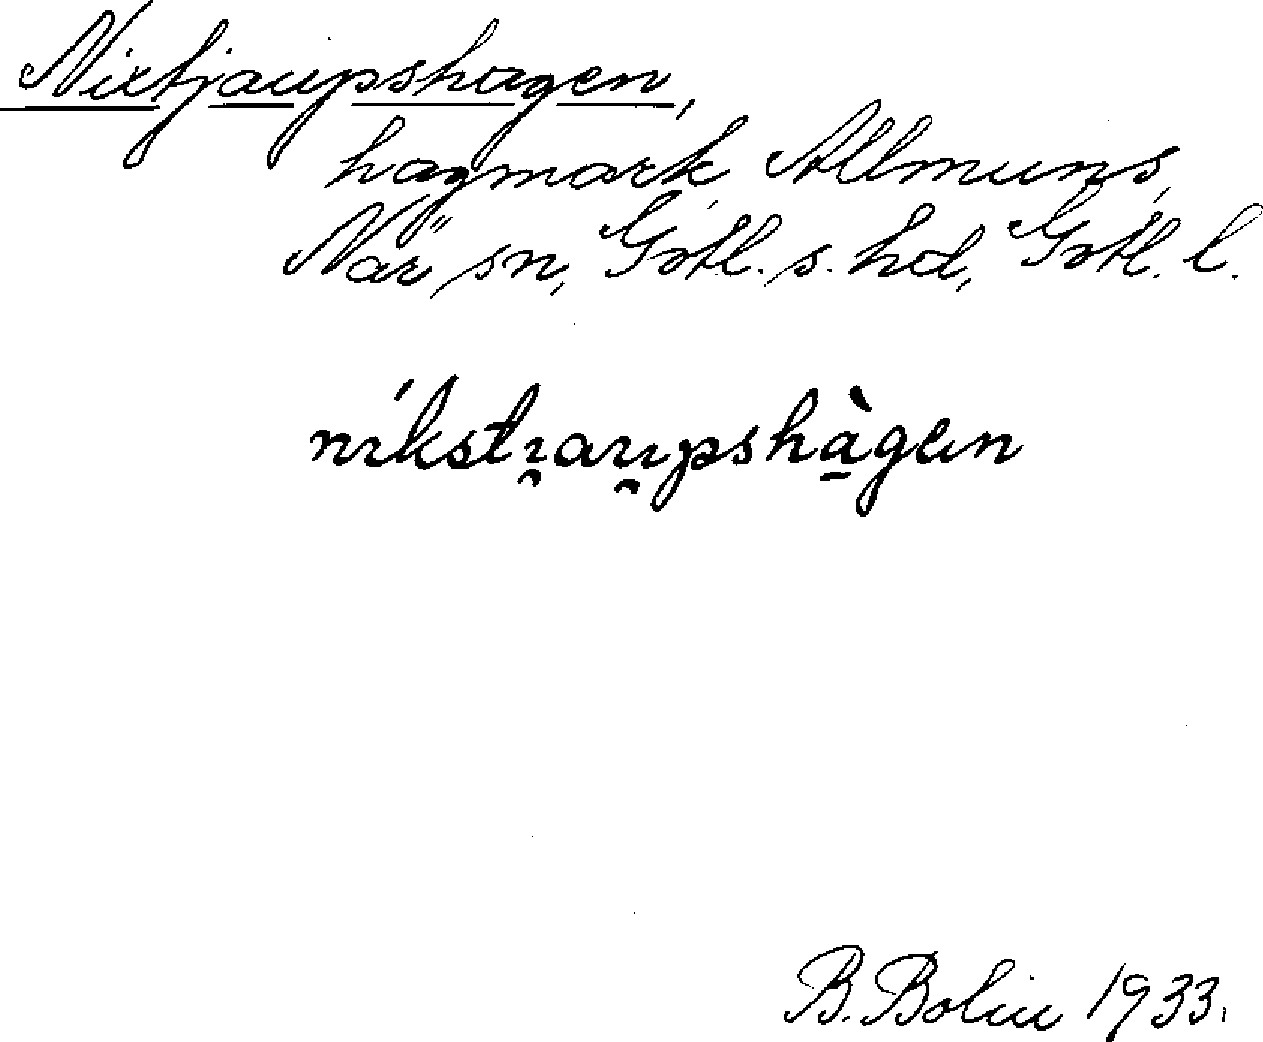 Nixtjaupshagen,
hagmark, Allmuns,
När sn, Gotl. s. hd, Gotl. l.
níkstı̯au̯pshà̠gan
B. Bolin 1933.